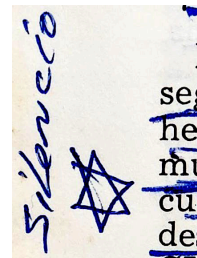 Silencio
seg
he
mu
cu
des